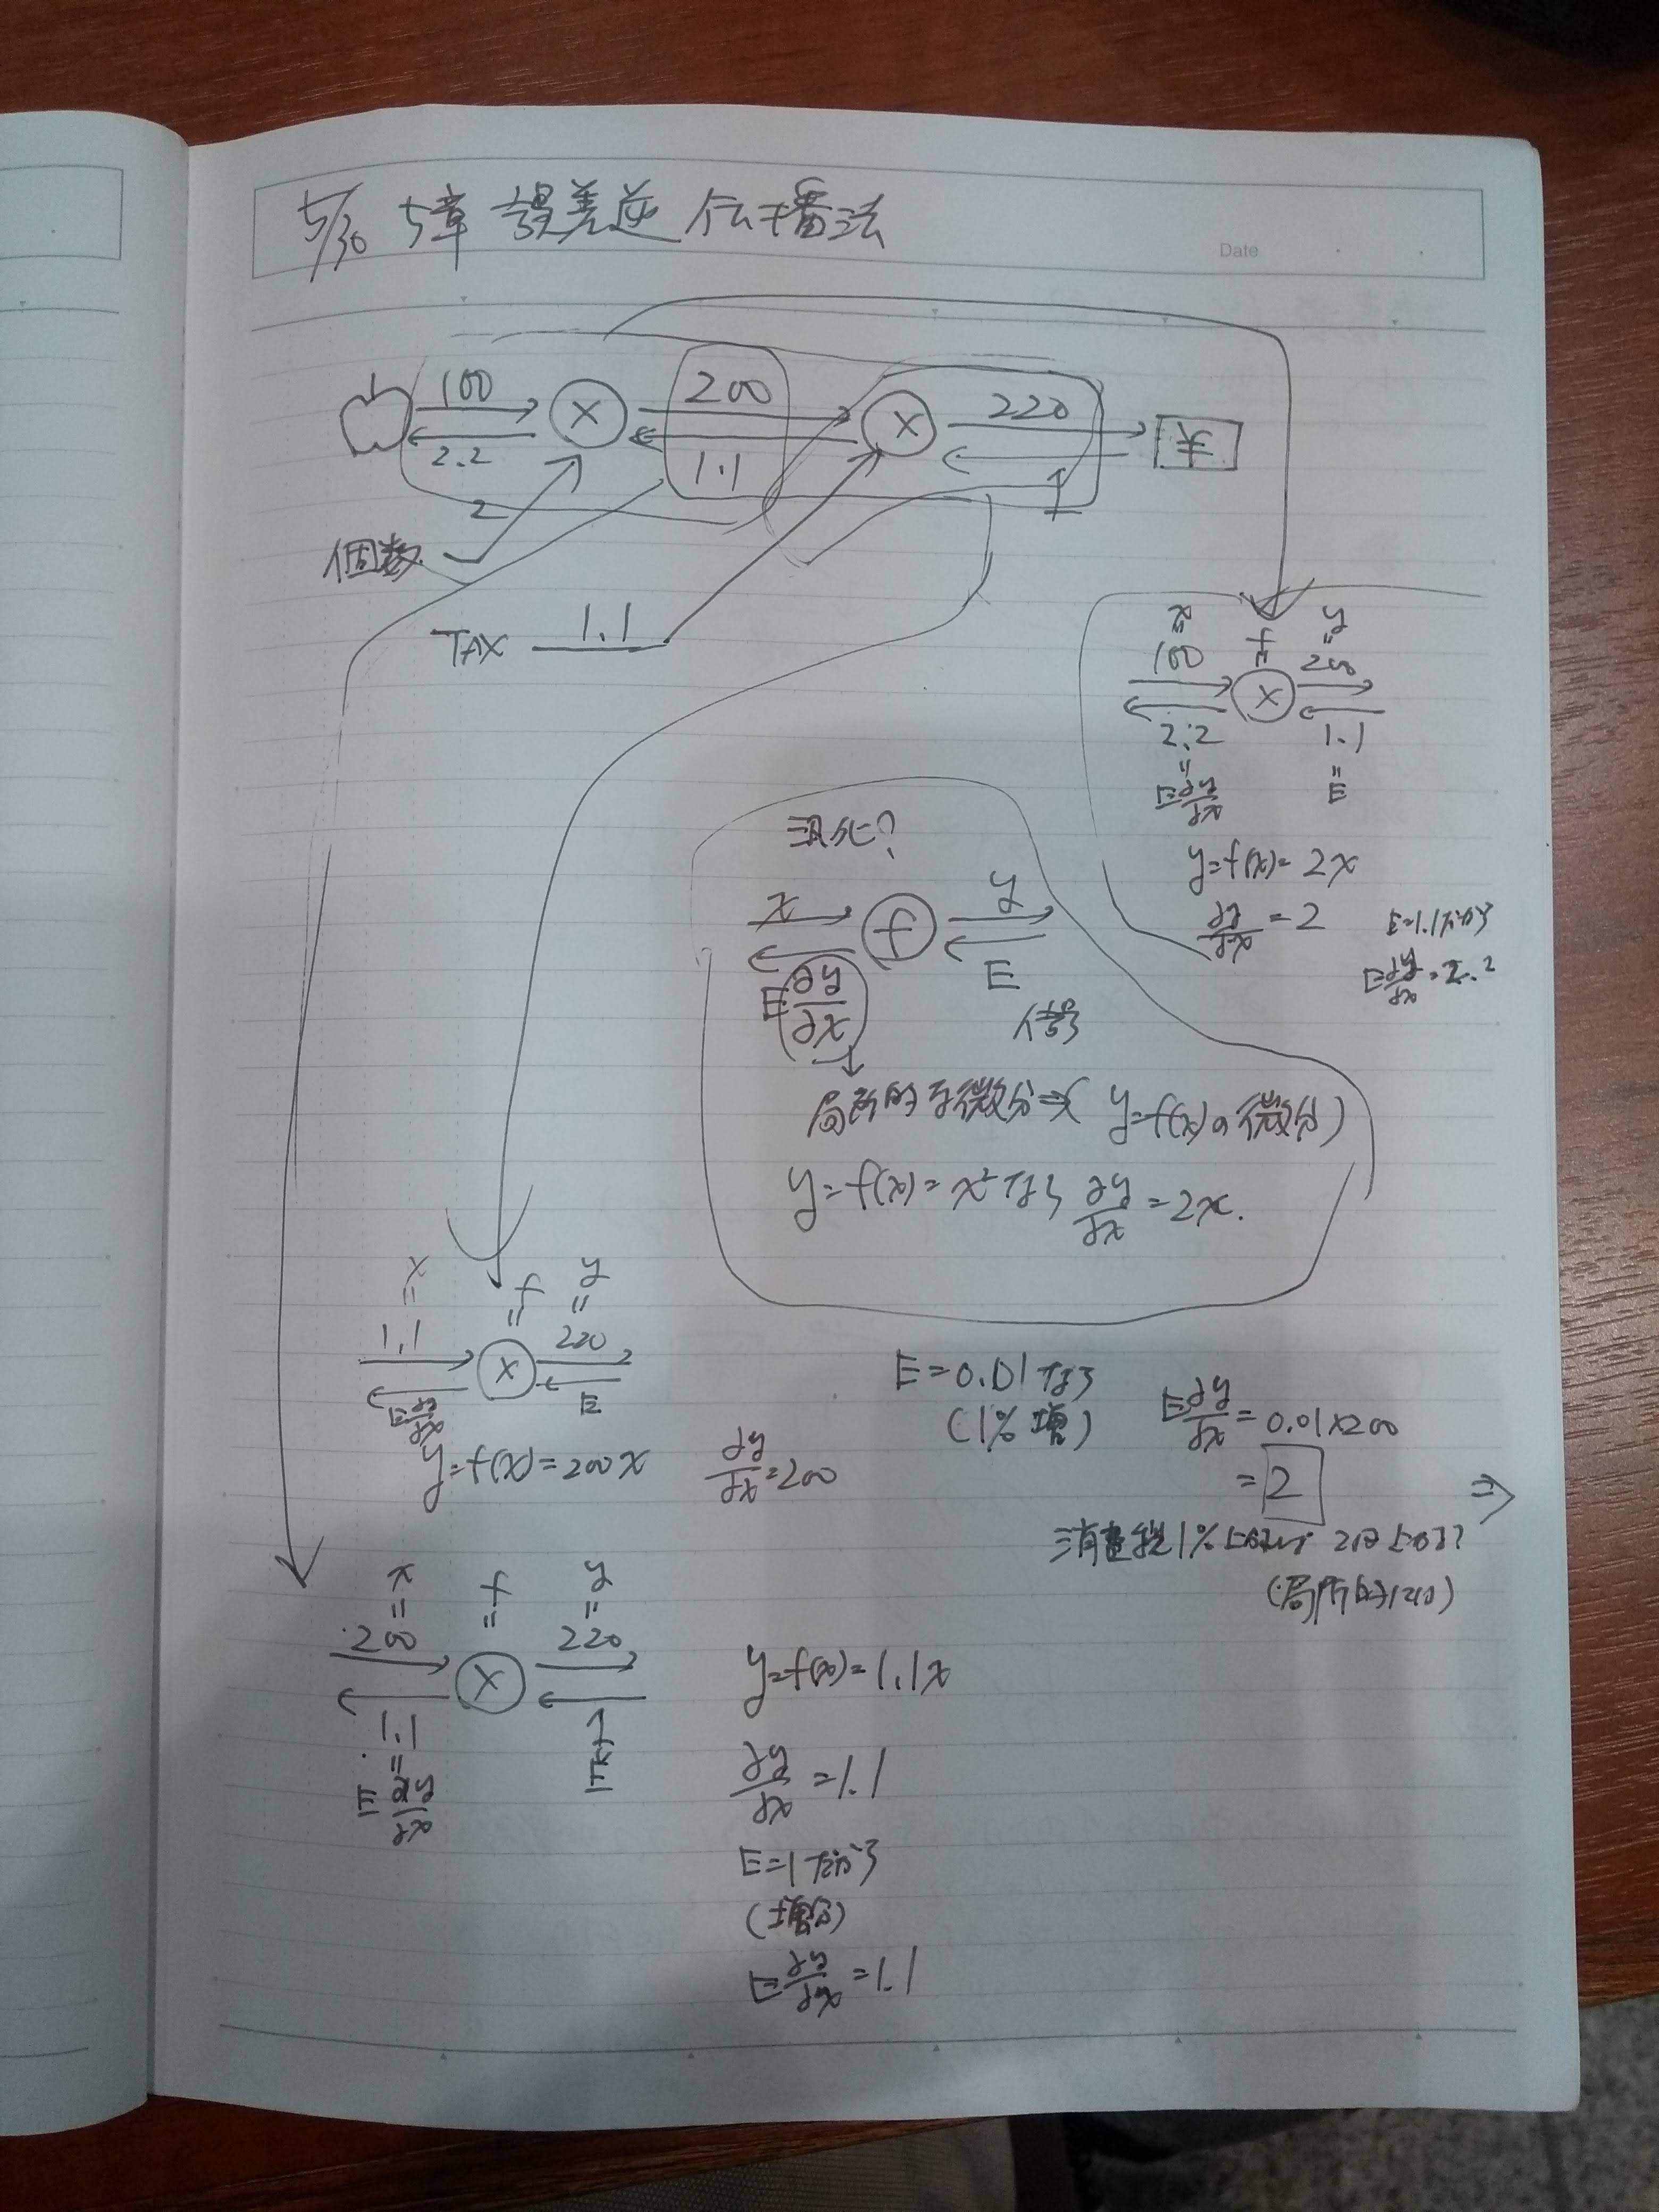 5/30 5章 誤差逆伝播法
Date
100 × 200 × 220 ¥
2.2 1.1 1
2
個数
TAX 1.1
x f y
= = =
100 × 200
2.2 1.1
= =
E∂y/∂x E
y=f(x)=2x
∂y/∂x=2 E=1.1だから
E∂y/∂x=2.2
x f y
E∂y/∂x E
信号
局所的な微分⇒( y=f(x)の微分)
y=f(x)=x²なら ∂y/∂x=2x.
x f y
= = =
1.1 × 220
E∂y/∂x E
y=f(x)=200x ∂y/∂x=200
E=0.01なら
(1%増) E∂y/∂x=0.01×200
=2 ⇒
消費税1%上がれば 2円上がる
x f y
= = =
200 × 220
1.1
=
E∂y/∂x
y=f(x)=1.1x
∂y/∂x=1.1
E=1だから
(増分)
E∂y/∂x=1.1